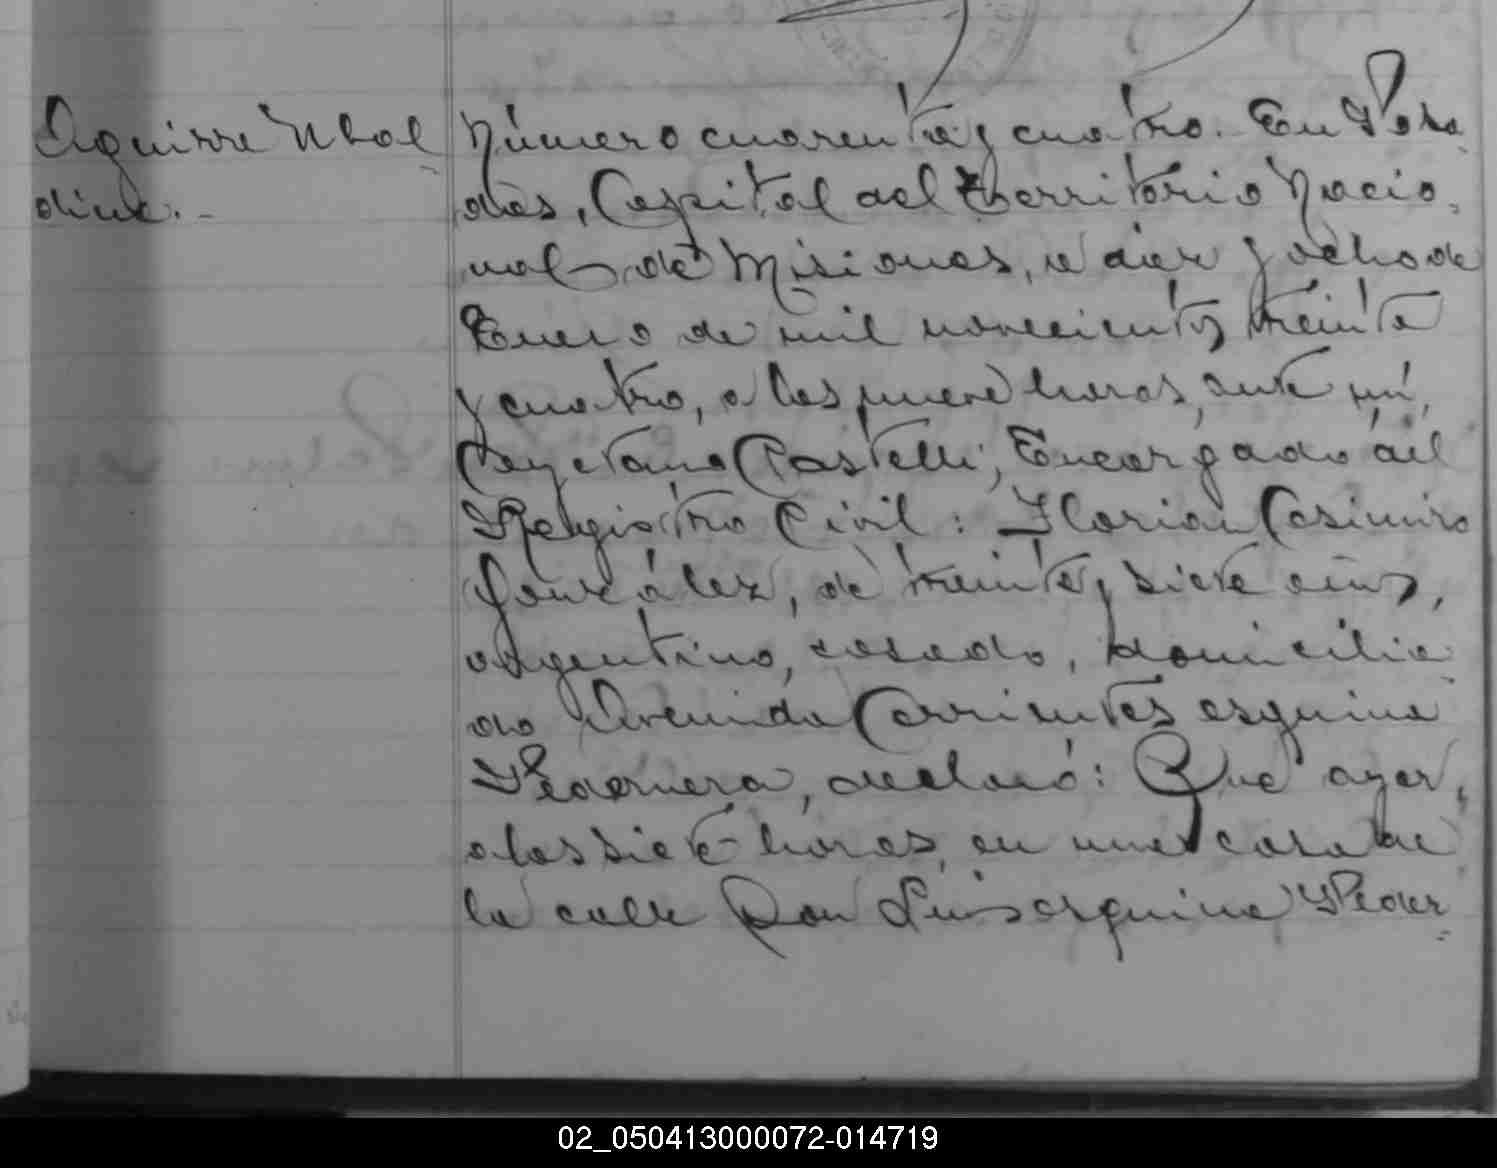 Aguirre Ubal
dina.-
Número cuarenta y cuatro. En Posa
das, Capital del Territorio Nacio
nal de Misiones, a diez y ocho de
Enero de mil novecientos treinta
y cuatro, a las nueve horas, ante mí,
Cayetano Castelli, Encargado del
Registro Civil: Florian Casimiro
González, de treinta y siete años,
argentino, casado, domicilia
do Avenida Corrientes esquina
Pedernera, declaró: Que ayer,
a las siete horas, en una casa de
la calle San Luis esquina Peder
02_050413000072-014719